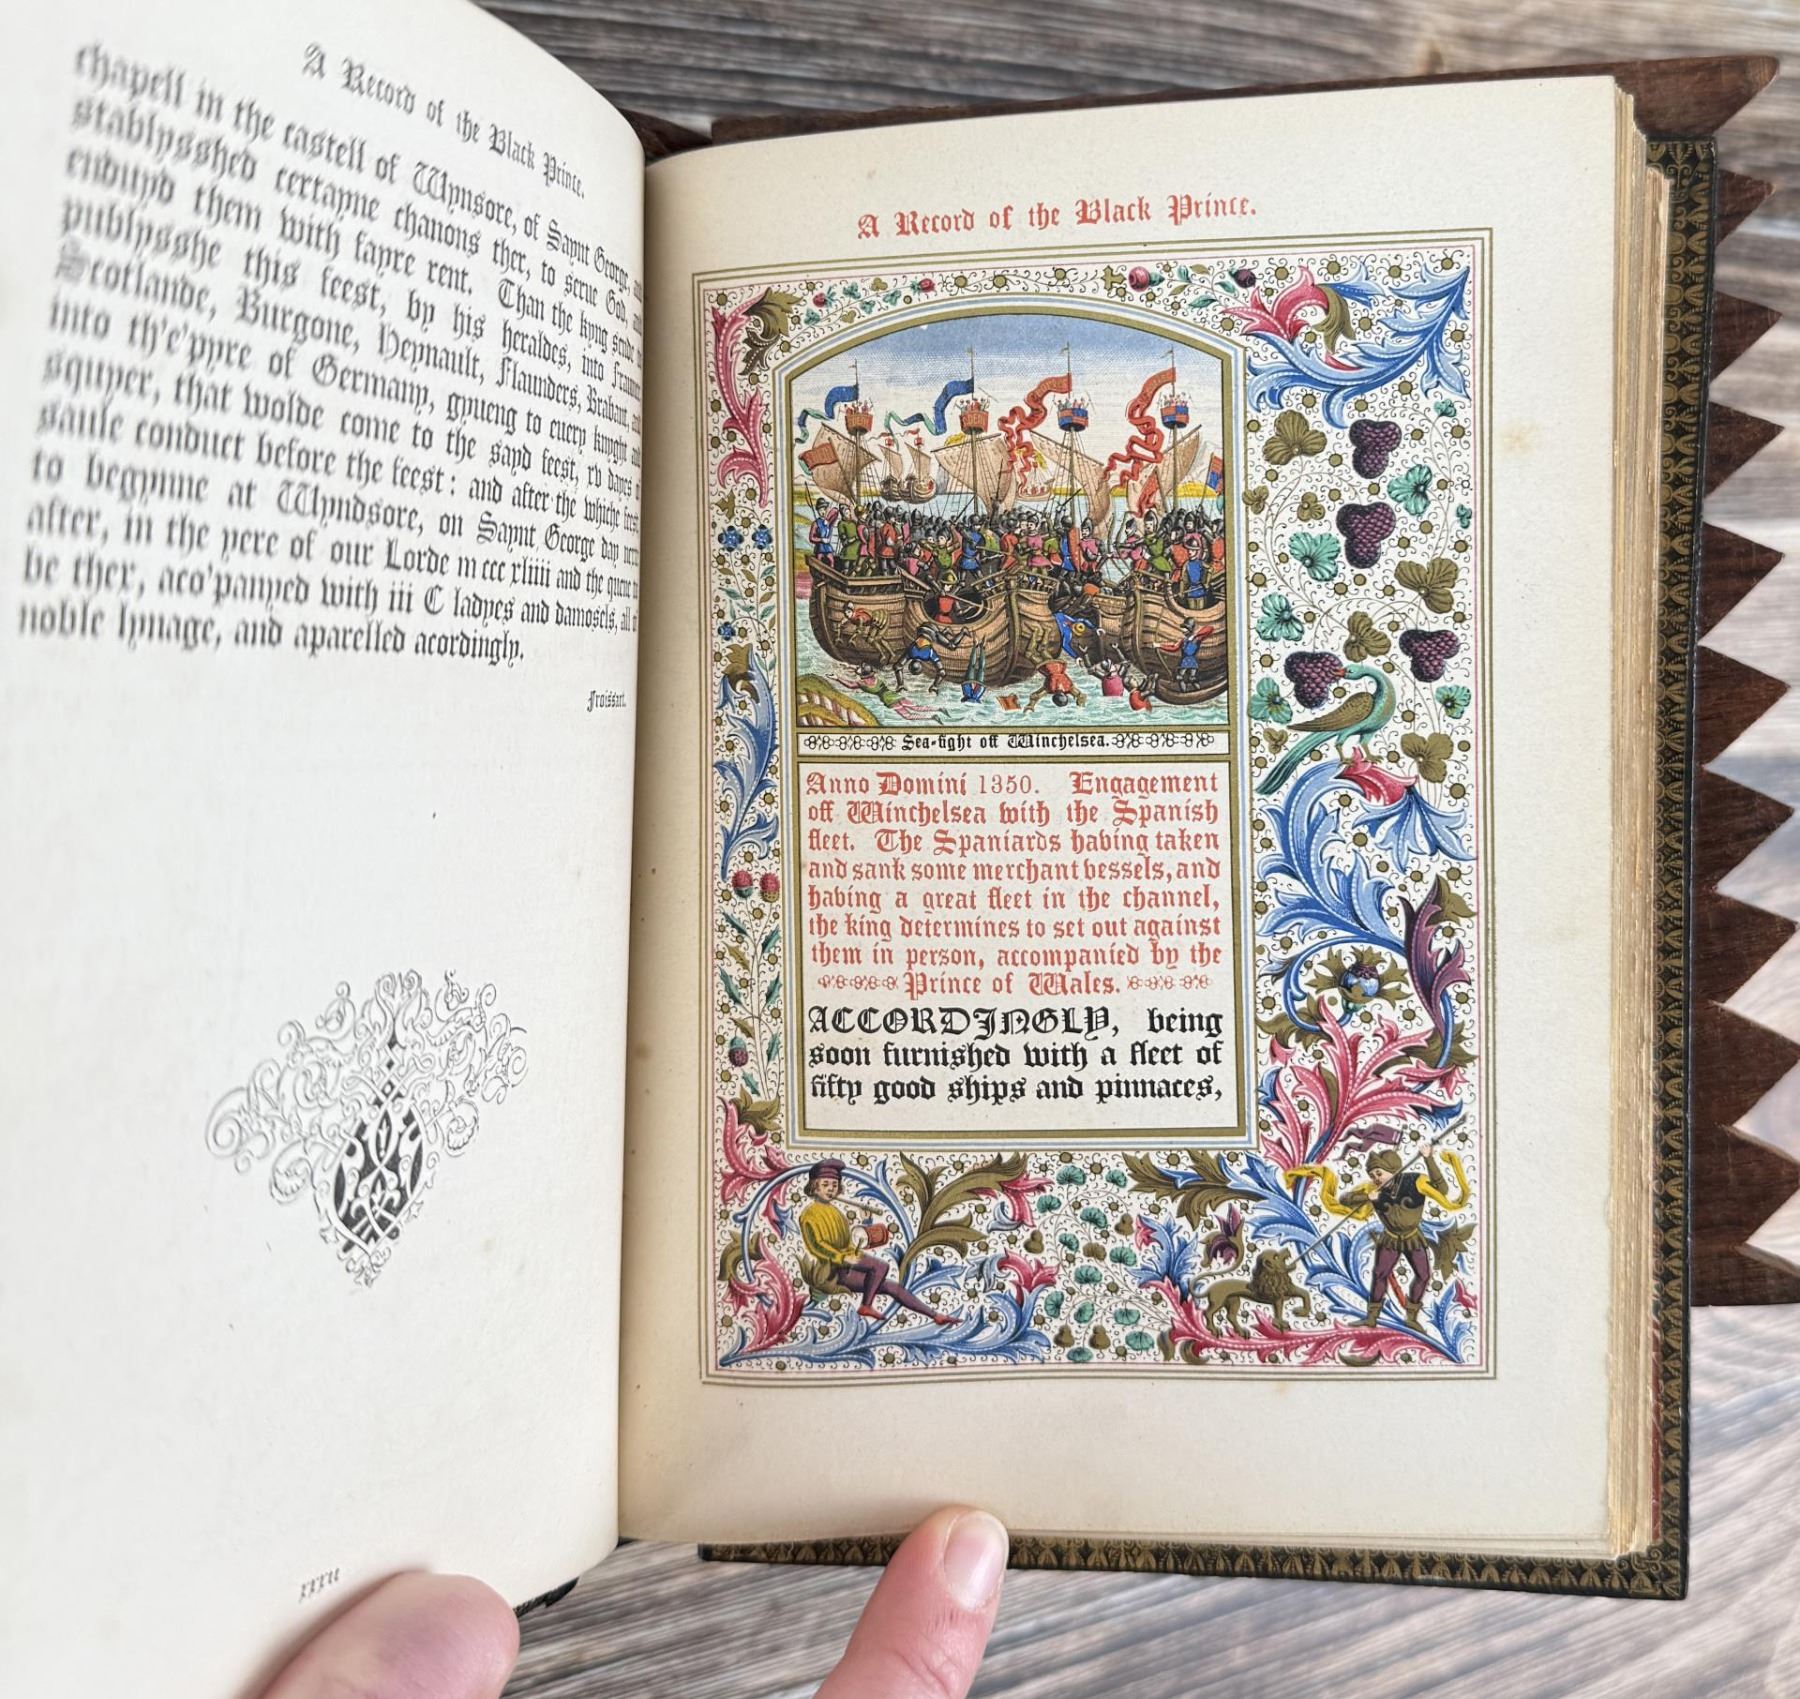 A Record of the Black Prince.
chapell in the castell of Wynsore, of Saynt George, and
stablysshed certayne chanons ther, to serue God, and
enduyd them with fayre rent. Than the kyng sende to
publysshe this feest, by his heraldes, into Fraunce,
Scotlande, Burgone, Heynault, Flaunders, Brabant, and
into th'e'pyre of Germany, gyueng to euery knyght and
squyer, that wolde come to the sayd feest, rv dayes of
saufe conduct before the feest: and after the whiche feest,
to begynne at Wyndsore, on Saynt George day next
after, in the yere of our Lorde m ccc xliiii and the quene to
be ther, aco'panyed with iii C ladyes and damosels, all of
noble lynage, and aparelled acordingly.
Froissart.
xxxii
A Record of the Black Prince.
Sea-fight off Winchelsea.
Anno Domini 1350. Engagement
off Winchelsea with the Spanish
fleet. The Spaniards having taken
and sank some merchant vessels, and
having a great fleet in the channel,
the king determines to set out against
them in person, accompanied by the
Prince of Wales.
ACCORDINGLY, being
soon furnished with a fleet of
fifty good ships and pinnaces,